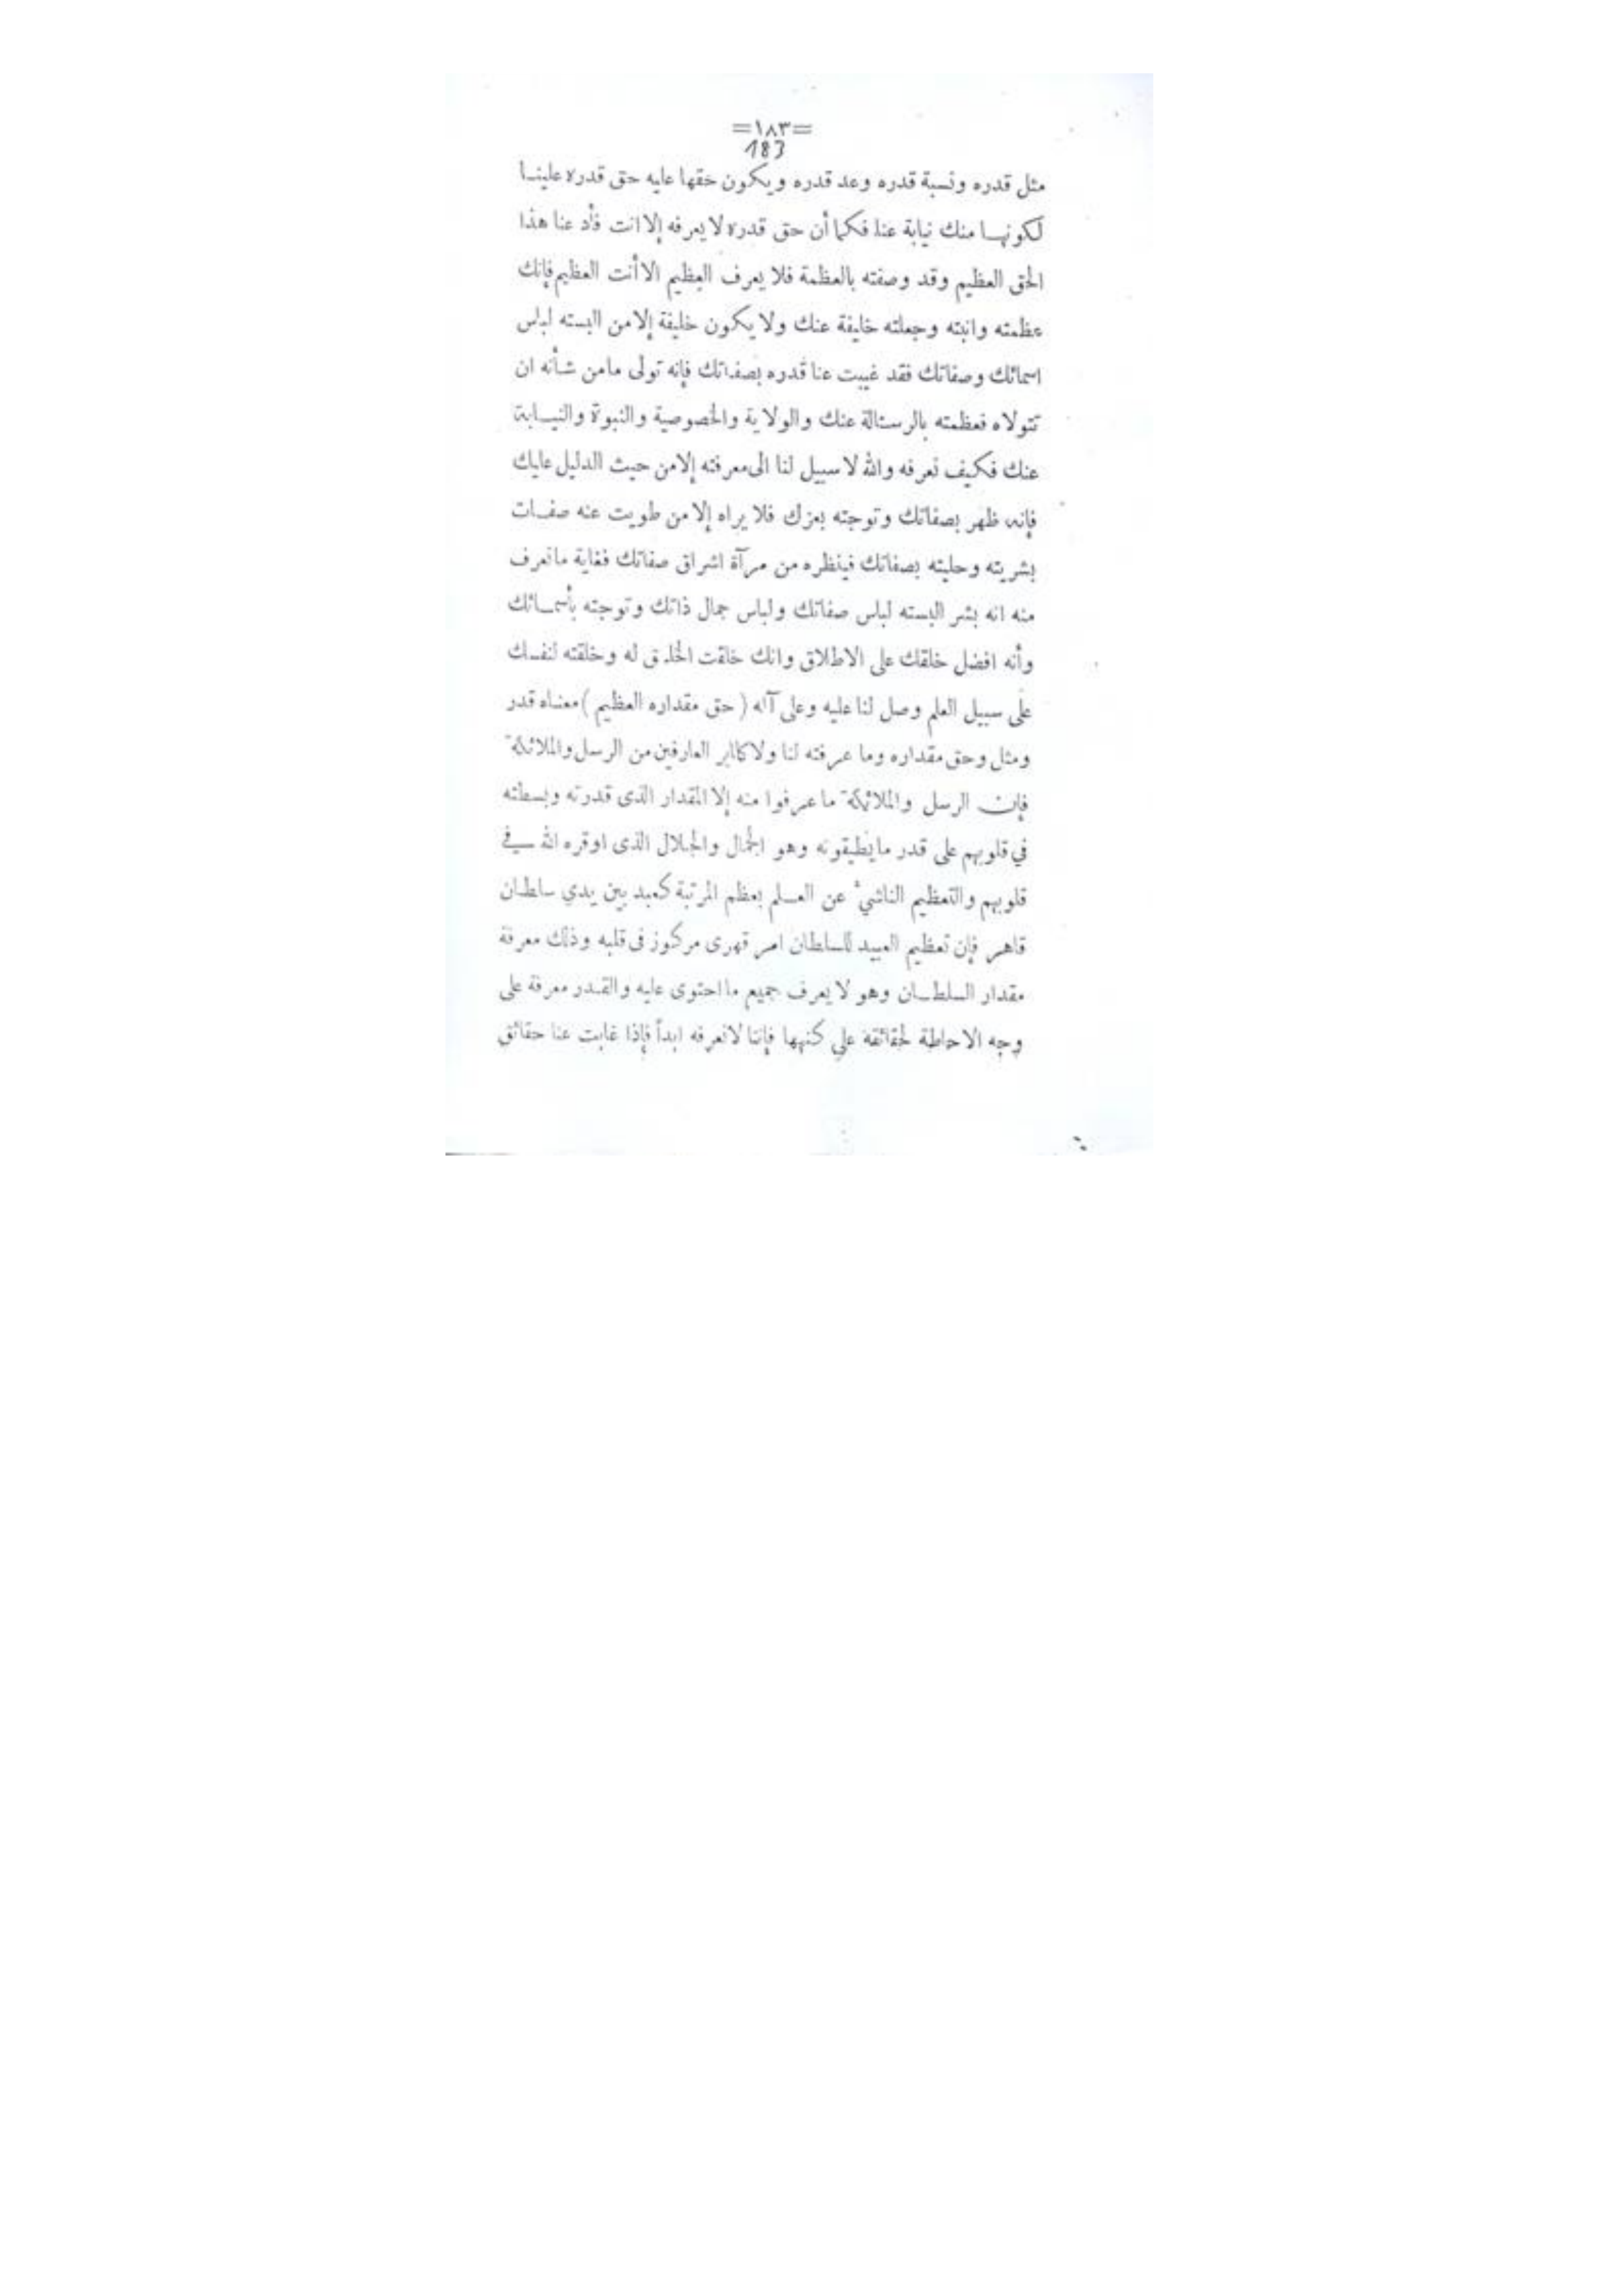 =١٨٣=
183
مثل قدره ونسبة قدره وعد قدره ويكون حقها عليه حق قدره علينا
لكونها منك نيابة عنا فكما أن حق قدره لا يعرفه إلا انت فأد عنا هذا
الحق العظيم وقد وصفته بالعظمة فلا يعرف العظيم الا أنت العظيم فإنك
عظمته وانبته وجعلته خليفة عنك ولا يكون خليفة إلا من البسته لباس
اسمائك وصفاتك فقد غيبت عنا قدره بصفاتك فإنه تولى ما من شأنه ان
تتولاه فعظمته بالرسالة عنك والولاية والخصوصية والنبوة والنيابة
عنك فكيف نعرفه والله لا سبيل لنا الى معرفته إلا من حيث الدليل عليك
فإنه ظهر بصفاتك وتوجته بعزك فلا يراه إلا من طويت عنه صفات
بشريته وحليته بصفاتك فينظره من مرآة اشراق صفاتك فغاية ما نعرف
منه انه بشر البسته لباس صفاتك ولباس جمال ذاتك وتوجته بأسمائك
وأنه افضل خلقك على الاطلاق وانك خلقت الخلق له وخلقته لنفسك
على سبيل العلم وصل لنا عليه وعلى آله ( حق مقداره العظيم ) معناه قدر
ومثل وحق مقداره وما عرفته لنا ولا كابر العارفين من الرسل والملائكة
فإن الرسل والملائكة ما عرفوا منه إلا المقدار الذى قدرته وبسطته
في قلوبهم على قدر ما يطيقونه وهو الجمال والجلال الذى اوقره الله في
قلوبهم والتعظيم الناشئ عن العلم بعظم المرتبة كعبد بين يدي سلطان
قاهر فإن تعظيم العبيد للسلطان امر قهرى مركوز فى قلبه وذلك معرفة
مقدار السلطان وهو لا يعرف جميع ما احتوى عليه والقدر معرفة على
وجه الاحاطة لحقائقه على كنهها فإننا لانعرفه ابداً فإذا غابت عنا حقائق